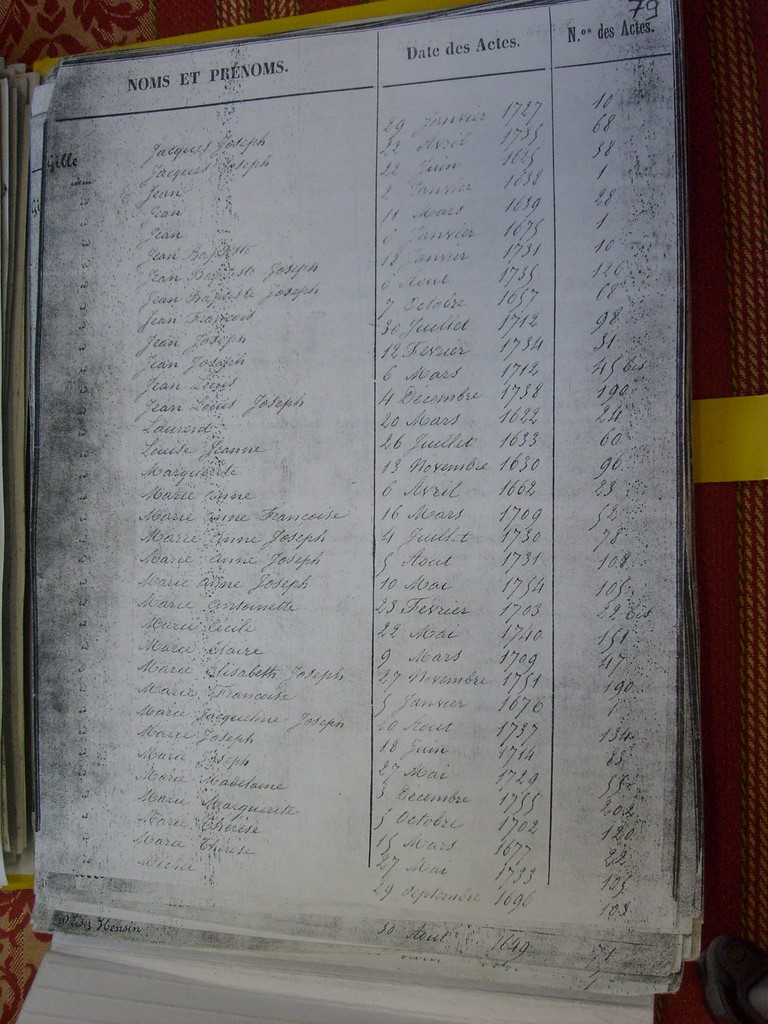 79
NOMS ET PRÉNOMS. Date des Actes. N.os des Actes.
Gille
Jacques Joseph 29 Janvier 1727 10
Jacques Joseph 22 Avril 1735 68
Jean 22 Juin 1625 38
Jean 2 Janvier 1638 1
Jean 11 Mars 1639 28
Jean Baptiste 6 Janvier 1675 1
Jean Baptiste Joseph 18 Janvier 1731 10
Jean Baptiste Joseph 6 Aout 1735 126
Jean François 7 Octobre 1657 68
Jean Joseph 30 Juillet 1712 98
Jean Joseph 12 Fevrier 1734 31
Jean Louis 6 Mars 1712 45 bis
Jean Louis Joseph 4 Decembre 1738 190
Laurend 20 Mars 1622 24
Louise Jeanne 26 Juillet 1633 60
Marguerite 13 Novembre 1630 96
Marie Anne 6 Avril 1662 23
Marie Anne Françoise 16 Mars 1709 52
Marie Anne Joseph 4 Juillet 1730 78
Marie Anne Joseph 5 Aout 1731 108
Marie Anne Joseph 10 Mai 1754 105
Marie Antoinette 23 Fevrier 1703 22 bis
Marie Cécile 22 Mai 1740 151
Marie Claire 9 Mars 1709 47
Marie Elisabeth Joseph 27 Novembre 1751 190
Marie Françoise 5 Janvier 1676 1
Marie Jacqueline Joseph 10 Aout 1737 134
Marie Joseph 18 Juin 1714 83
Marie Joseph 27 Mai 1729 55
Marie Madelaine 3 Decembre 1755 202
Marie Marguerite 5 Octobre 1702 120
Marie Thérèse 15 Mars 1677 22
Marie Thérèse 27 Mai 1733 103
Michel 29 Septembre 1696 103
Hensin 30 Aout 1649 71